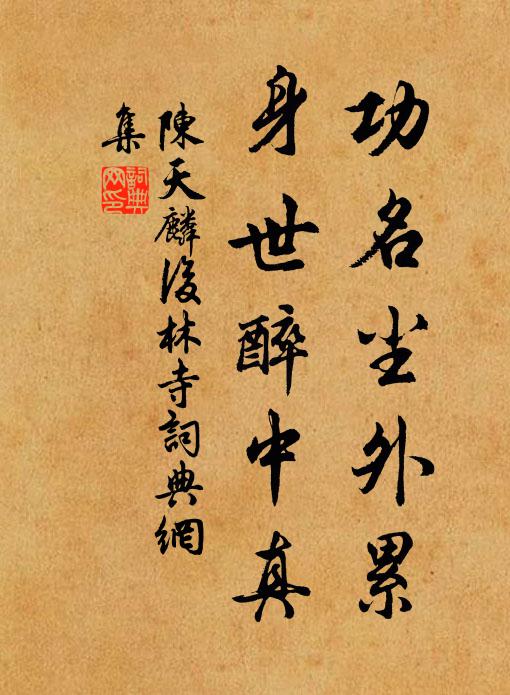 功名尘外累
身世醉中真
陳天麟後林寺詞典網
集
詞典網印